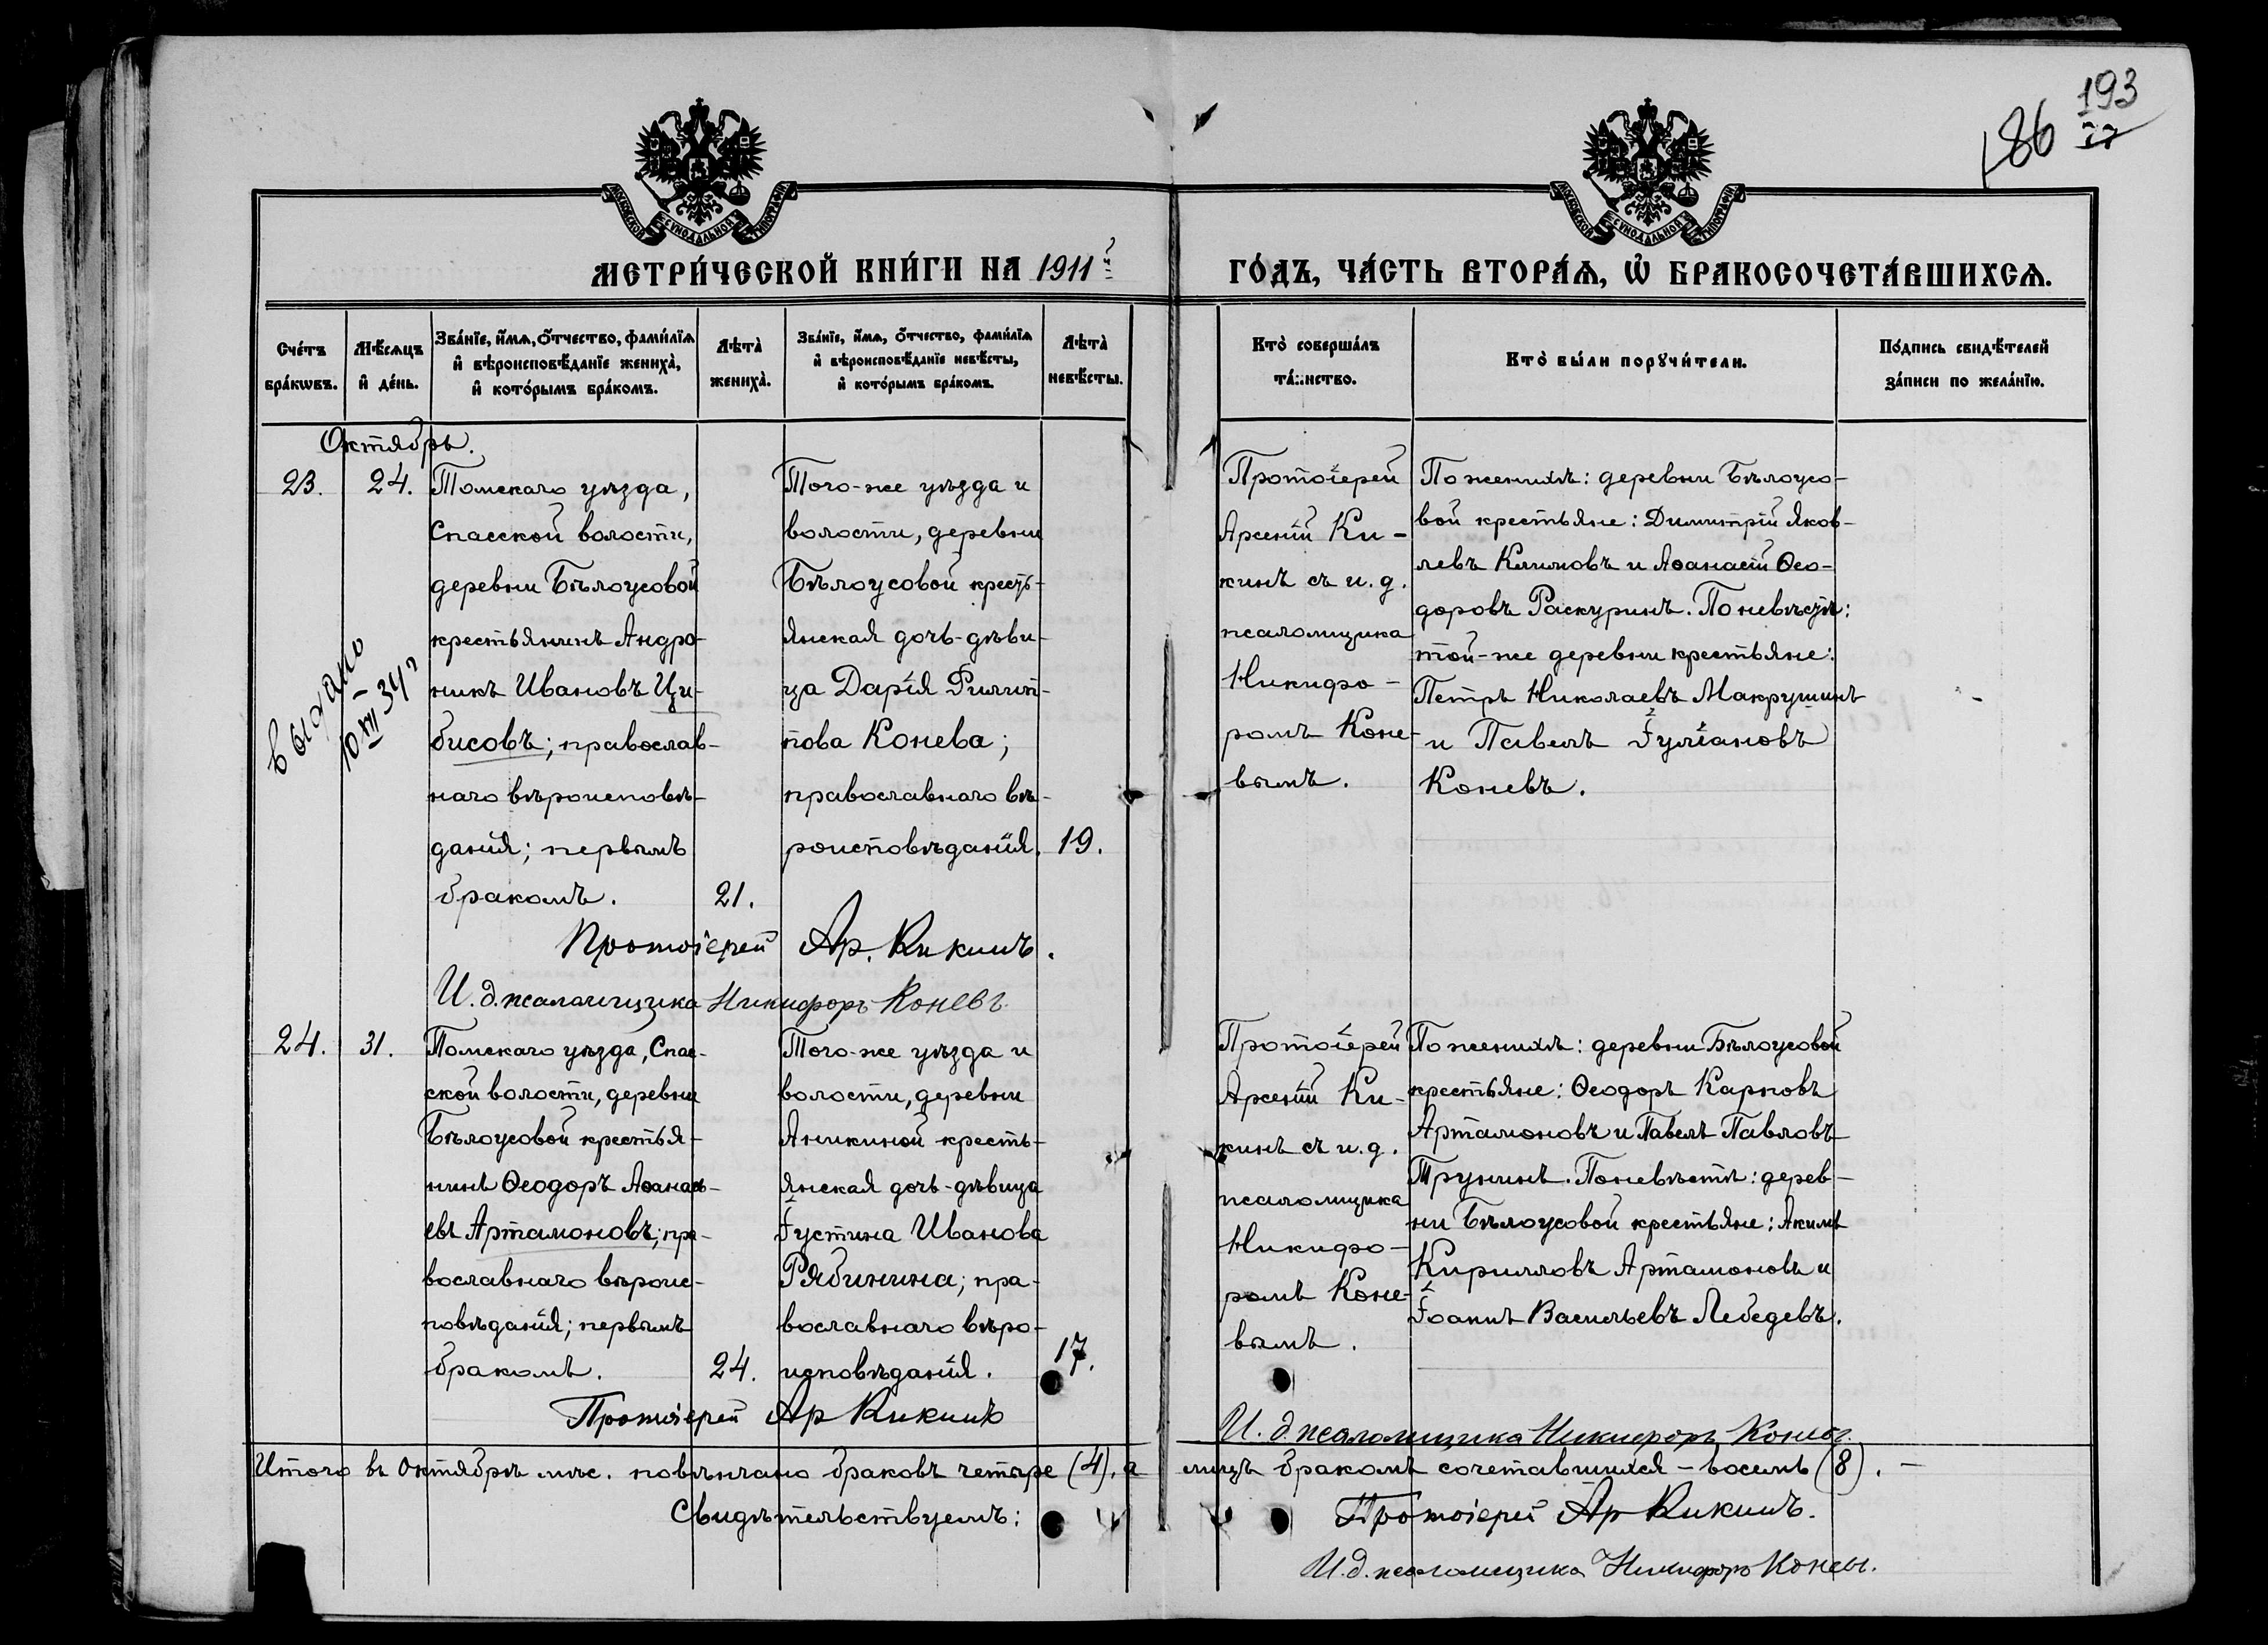 193
77
186
МОСКОВСКОЙ СѴНОДАЛЬНОЙ ТИПОГРАФІИ
МОСКОВСКОЙ СѴНОДАЛЬНОЙ ТИПОГРАФІИ
МЕТРИ́ЧЕСКОЙ КНИ́ГИ НА 1911й
ГО́ДЪ, ЧА́СТЬ ВТОРА́Ѧ, Ѡ҆ БРАКОСОЧЕТА́ВШИХСѦ.
Сче́тъ
бра́кѡвъ.
Мѣ́сѧцъ
и҆ де́нь.
Зва́нїе, и҆́мѧ, ѻ҆́тчество, фами́лїѧ
и҆ вѣроисповѣ́данїе жениха̀,
и҆ кото́рымъ бра́комъ.
Лѣта̀
жениха̀.
Зва́нїе, и҆́мѧ, ѻ҆́тчество, фами́лїѧ
и҆ вѣроисповѣ́данїе невѣ́сты,
и҆ кото́рымъ бра́комъ.
Лѣта̀
невѣ́сты.
Кто̀ соверша́лъ
та́инство.
Кто̀ бы́ли порꙋчи́тели.
По́дпись свидѣ́телей
за́писи по жела́нїю.
Октябрь.
23.
24.
Томскаго уѣзда,
Спасской волости,
деревни Бѣлоусовой
крестьянинъ Андро-
никъ Ивановъ Ци-
бисовъ; православ-
наго вѣроисповѣ-
данія; первымъ
бракомъ.
21.
Того-же уѣзда и
волости, деревни
Бѣлоусовой кресть-
янская дочь-дѣви-
ца Дарія Филип-
пова Конева;
православнаго вѣ-
роисповѣданія.
19.
Протоіерей
Арсеній Ки-
кинъ съ и.д.
псаломщика
Никифо-
ромъ Коне-
вымъ.
По женихѣ: деревни Бѣлоусо-
вой крестьяне: Димитрій Яков-
левъ Климовъ и Аѳанасій Ѳео-
доровъ Раскуринъ. По невѣстѣ:
той-же деревни крестьяне:
Петръ Николаевъ Макрушинъ
и Павелъ Іуліановъ
Коневъ.
выдано
10 VII 34 г
Протоіерей Ар. Кикинъ.
И.д. псаломщика Никифоръ Коневъ
24.
31.
Томскаго уѣзда, Спас-
ской волости, деревни
Бѣлоусовой крестья-
нинъ Ѳеодоръ Аѳанась-
евъ Артамоновъ; пра-
вославнаго вѣроис-
повѣданія; первымъ
бракомъ.
24.
Того-же уѣзда и
волости, деревни
Аникиной кресть-
янская дочь-дѣвица
Іустина Иванова
Рябинина; пра-
вославнаго вѣро-
исповѣданія.
17.
Протоіерей
Арсеній Ки-
кинъ съ и.д.
псаломщика
Никифо-
ромъ Коне-
вымъ.
По женихѣ: деревни Бѣлоусовой
крестьяне: Ѳеодоръ Карповъ
Артамоновъ и Павелъ Павловъ
Трунинъ. По невѣстѣ: дерев-
ни Бѣлоусовой крестьяне: Акимъ
Кирилловъ Артамоновъ и
Іоаннъ Васильевъ Лебедевъ.
Протоіерей Ар Кикинъ
И.д. псаломщика Никифоръ Коневъ.
Итого въ Октябрѣ мѣс. повѣнчано браковъ четыре (4), а лицъ бракомъ сочетавшихся - восемь (8). -
Свидѣтельствуемъ: Протоіерей Ар Кикинъ.
И.д. псаломщика Никифоръ Коневъ.